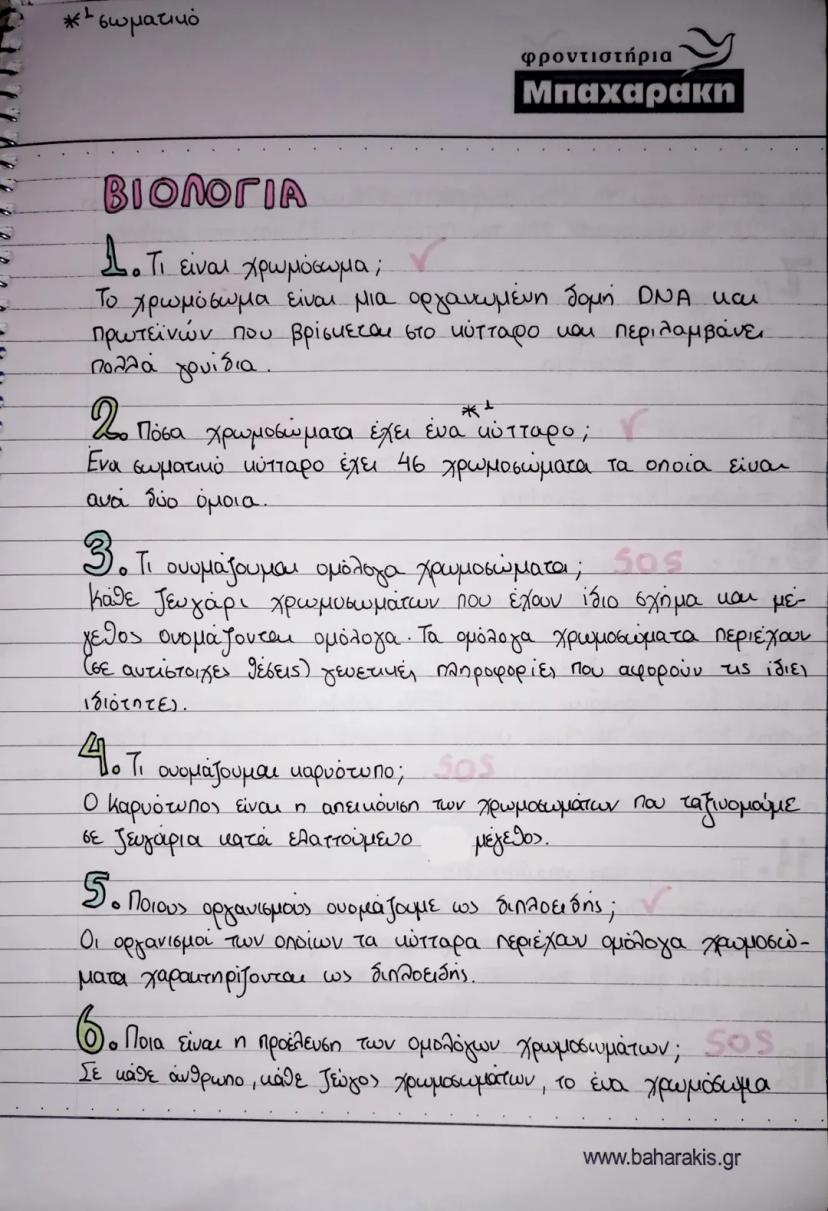 *¹ σωματικό
φροντιστήρια
Μπαχαράκη
ΒΙΟΛΟΓΙΑ
1. Τι είναι χρωμόσωμα; ✓
Το χρωμόσωμα είναι μια οργανωμένη δομή DNA και
πρωτεϊνών που βρίσκεται στο κύτταρο και περιλαμβάνει
πολλά γονίδια.
2. Πόσα χρωμοσώματα έχει ένα *¹ κύτταρο; ✓
Ένα σωματικό κύτταρο έχει 46 χρωμοσώματα τα οποία είναι
ανά δύο όμοια.
3. Τι ονομάζουμαι ομόλογα χρωμοσώματα; SOS
Κάθε ζευγάρι χρωμοσωμάτων που έχουν ίδιο σχήμα και μέ-
γεθος ονομάζονται ομόλογα. Τα ομόλογα χρωμοσώματα περιέχουν
(σε αντίστοιχες θέσεις) γενετικές πληροφορίες που αφορούν τις ίδιες
ιδιότητες.
4. Τι ονομάζουμαι καρυότυπο; SOS
Ο καρυότυπος είναι η απεικόνιση των χρωμοσωμάτων που ταξινομούμε
σε ζευγάρια κατά ελαττούμενο μέγεθος.
5. Ποιους οργανισμούς ονομάζουμε ως διπλοειδής; ✓
Οι οργανισμοί των οποίων τα κύτταρα περιέχουν ομόλογα χρωμοσώ-
ματα χαρακτηρίζονται ως διπλοειδής.
6. Ποια είναι η προέλευση των ομολόγων χρωμοσωμάτων; SOS
Σε κάθε άνθρωπο, κάθε ζεύγος χρωμοσωμάτων, το ένα χρωμόσωμα
www.baharakis.gr